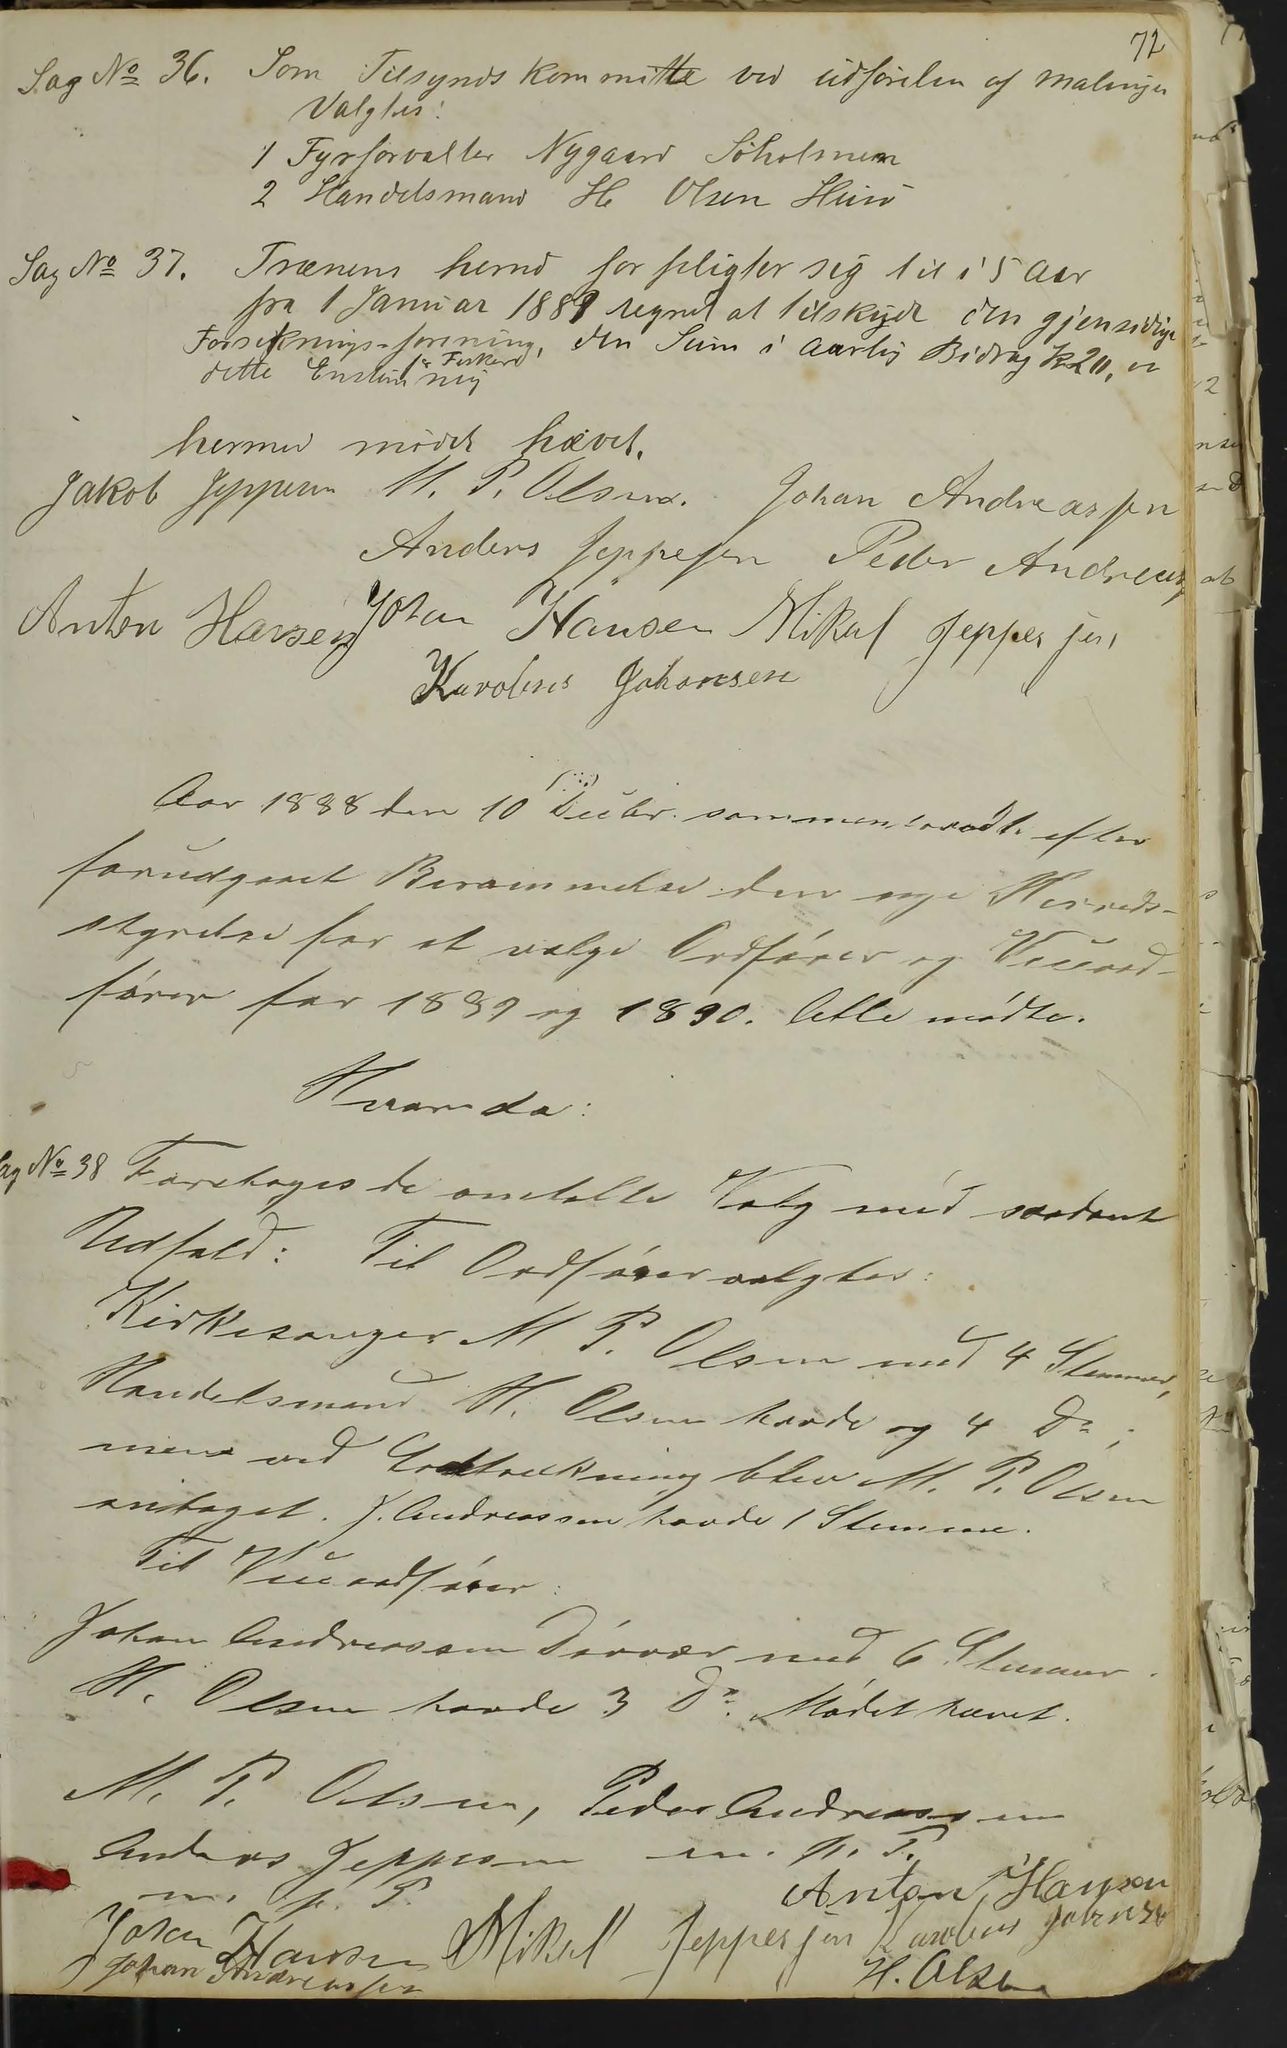 72
Sag No 36. Som Tilsyns Kommitte ved udførelsen af malinger
Valgtes:
1 Fyrforvalter Nygaard Søholmen
2 Handelsmand H. Olsen Husø
Sag No 37. Trænens herred for pligter sig til i 5 Aar
fra 1 Januar 1889 regnet at tilskyde den gjensidige
Forsikrings-forening, den Sum i aarlig Bidrag K 20,
dette Enstemmig
for Fiskere
hermed mødet hævet.
Jakob Jeppesen M. P. Olsen. Johan Andreassen
Anders Jeppesen Peder Andreas
Anton Hansen Johan Hansen Mikal Jeppesen
Karolius Johansen
Aar 1888 den 10 Decbr. sammentraadte efter
forudgaaet Berammelse den nye Herreds-
styrelse for at vælge Ordfører og Viceord-
fører for 1889 og 1890. Alle mødte.
Hvorda:
Sag No 38 Foretoges de omtalte Valg med saadant
Udfald: Til Ordfører valgtes:
Kirkesanger M. P. Olsen med 4 Stemmer,
Handelsmand H. Olsen havde og 4 Do;
men ved Lodtrækning blev M. P. Olsen
antaget. J. Andreassen havde 1 Stemme.
Til Viceordfører:
Johan Andreassen Dørvær med 6 Stemmer.
H. Olsen havde 3 Do. Mødet hævet.
M. P. Olsen, Peder Andreassen
Anders Jeppesen m. p. P.
m. p. P. Anton Hansen
Johan Hansen Mikal Jeppesen Karolius Johansen
Johan Andreassen H. Olsen